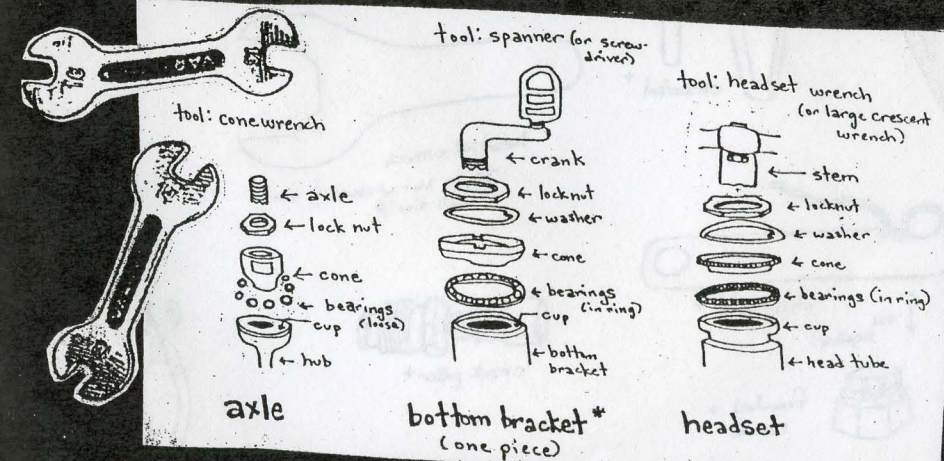 tool: cone wrench
axle
lock nut
cone
bearings
(loose)
cup
hub
axle
tool: spanner (or screw-
driver)
crank
locknut
washer
cone
bearings
(in ring)
cup
bottom
bracket
bottom bracket*
(one piece)
tool: headset wrench
(or large crescent
wrench)
stem
locknut
washer
cone
bearings (in ring)
cup
head tube
headset